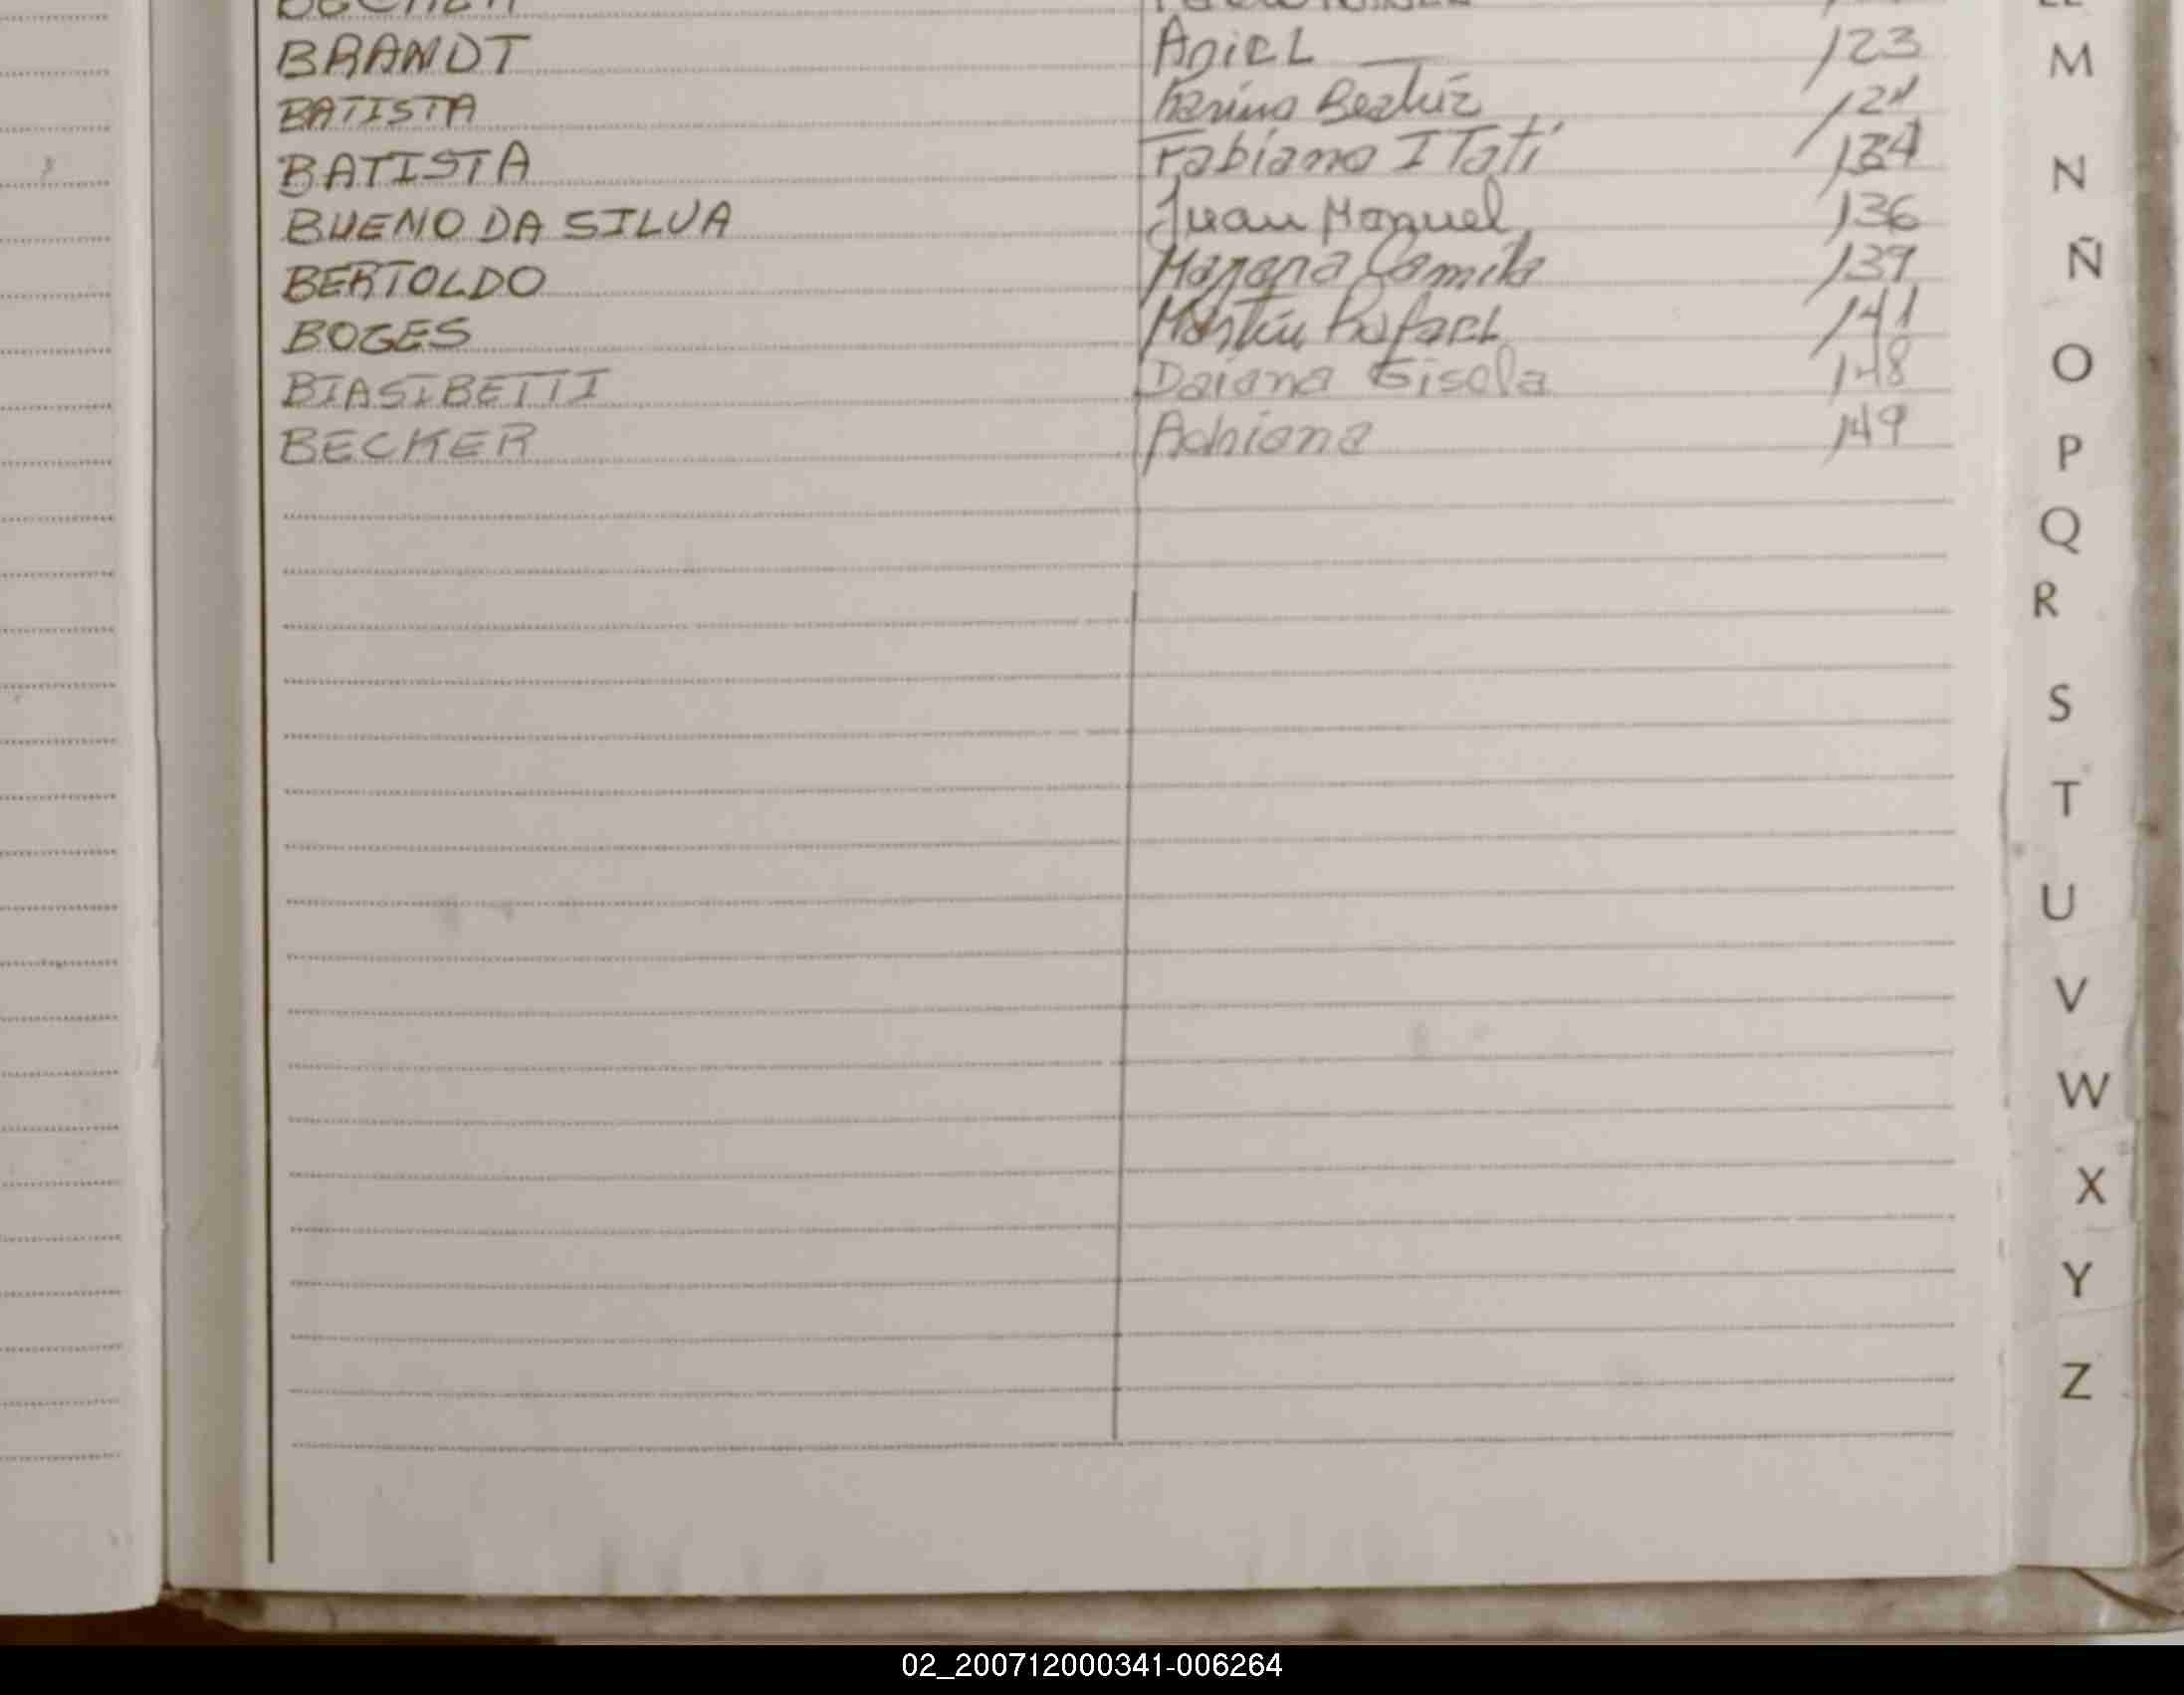 BRANDT ARIEL 123
BATISTA Karina Beatriz 124
BATISTA Fabiana ITatí 134
BUENO DA SILVA Juan Manuel 136
BERTOLDO Magana Camila 139
BOGES Martín Rafael 141
BIASIBETTI Daiana Gisela 148
BECKER Adriana 149
M
N
Ñ
O
P
Q
R
S
T
U
V
W
X
Y
Z
02_200712000341-006264